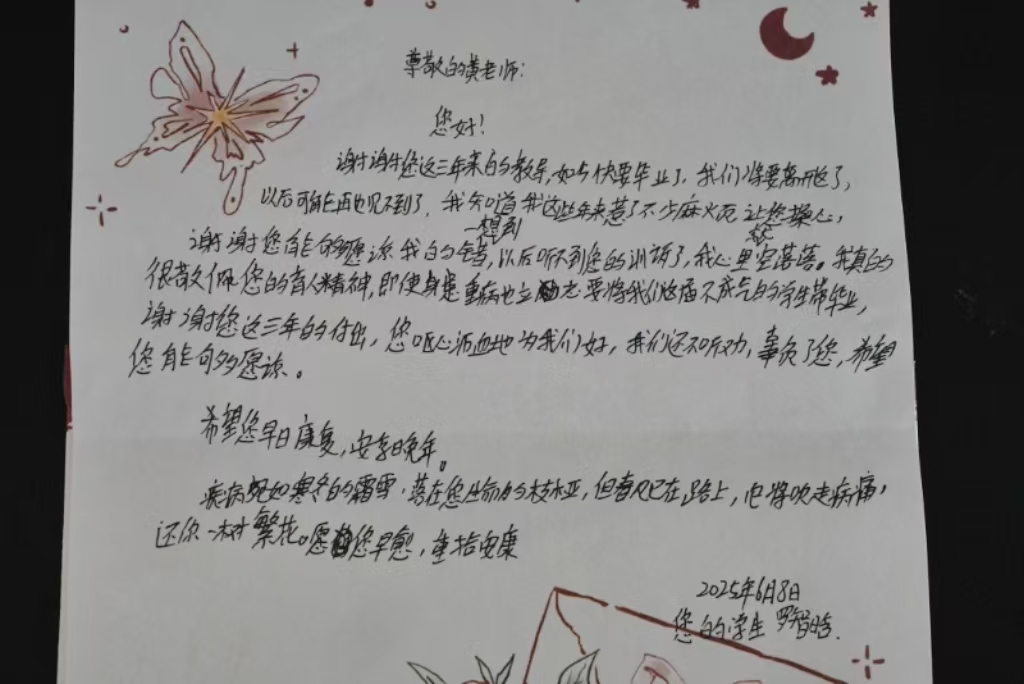 尊敬的黄老师:
您好!
谢谢您这三年来的教导,如今快要毕业了,我们将要离开这了,
以后可能再也见不到了,我知道我这些年来惹了不少麻烦让您操心,
谢谢您能够愿谅我的错,一想到以后听不到您的训话了,我心里空落落。我真的
很敬佩您的育人精神,即使身患重病也立志要将我们这届不成气的学生带毕业,
谢谢您这三年的付出,您呕心沥血地为我们好,我们还不听劝,辜负了您,希望
您能句多愿谅。
希望您早日康复,安享晚年。
疾病宛如寒冬的霜雪,落在您生命的枝桠,但春风已在路上,也将吹走病痛,
还你一树繁花。愿您早愈,重拾安康
2025年6月8日
您的学生 罗智晗.